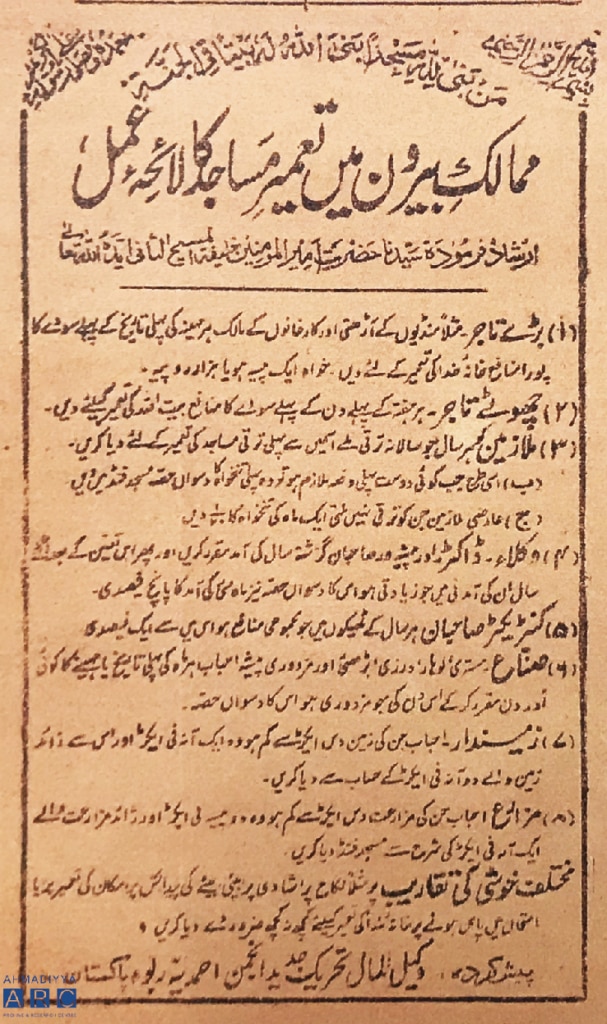 بسم الله الرحمن الرحيم
نحمده ونصلي على رسوله
مَن بَنٰى لِلّٰهِ مَسْجِدًا بَنَى اللهُ لَهٗ بَيْتًا فِي الْجَنَّةِ
ممالکِ بیرون میں تعمیرِ مساجد کا لائحۂ عمل
ارشاد فرمودہ سیدنا حضرت امیر المومنین خلیفۃ المسیح الثانی ایدہ اللہ تعالےٰ
(۱) بڑے تاجر۔ مثلاً منڈیوں کے آڑھتی اور کارخانوں کے مالک ہر مہینہ کی پہلی تاریخ کے پہلے سودے کا
پورا منافع خانۂ خدا کی تعمیر کے لئے دیں۔ خواہ ایک پیسہ ہو یا ہزار روپیہ۔
(۲) چھوٹے تاجر۔ ہر ہفتہ کے پہلے دن کے پہلے سودے کا منافع بیت اللہ کی تعمیر کیلئے دیں۔
(۳) ملازمین کو ہر سال جو سالانہ ترقی ملے اسمیں سے پہلی ترقی مساجد کی تعمیر کے لئے دیا کریں۔
(ب) اسی طرح جب کوئی دوست پہلی دفعہ ملازم ہو تو وہ پہلی تنخواہ کا دسواں حصہ مسجد فنڈ میں دیں
(ج) عارضی ملازمین جن کو ترقی نہیں ملتی ایک ماہ کی تنخواہ کا دیں
(۴) وکلاء۔ ڈاکٹر اور پیشہ ور صاحبان گزشتہ سال کی آمد مقرر کریں اور پھر اس تعین کے بعد اگلے
سال ان کی آمدنی میں جو زیادتی ہو اس کا دسواں حصہ نیز ماہ مئی کی آمد کا پانچ فیصدی۔
(۵) کنٹریکٹر صاحبان ہر سال کے ٹھیکوں میں جو مجموعی منافع ہو اس میں سے ایک فیصدی
(۶) صناع۔ مستری لوہار، درزی، بڑھئی اور مزدوری پیشہ احباب ہر ماہ کی پہلی تاریخ یا مہینے کا کوئی
اور دن مقرر کر کے اس دن کی جو مزدوری ہو اس کا دسواں حصہ۔
(۷) زمیندار۔ احباب جن کی زمین دس ایکڑ سے کم ہو وہ ایک آنہ فی ایکڑ اور اس سے زائد
زمین والے دو آنہ فی ایکڑ کے حساب سے دیا کریں۔
(۸) مزارع احباب جن کی مزارعت دس ایکڑ سے کم ہو وہ دو پیسہ فی ایکڑ اور زائد مزارعت والے
ایک آنہ فی ایکڑ کی شرح سے مسجد فنڈ دیا کریں۔
مختلف خوشی کی تقاریب پر مثلاً نکاح پر، شادی پر، بیٹی بیٹے کی پیدائش پر، مکان کی تعمیر پر یا
امتحان میں پاس ہونے پر خانہ خدا کی تعمیر کیلئے کچھ نہ کچھ ضرور دے دیا کریں۔
پیش کردہ۔ وکیل المال تحریک جدید انجمن احمدیہ ربوہ پاکستان
AHMADIYYA
ARC